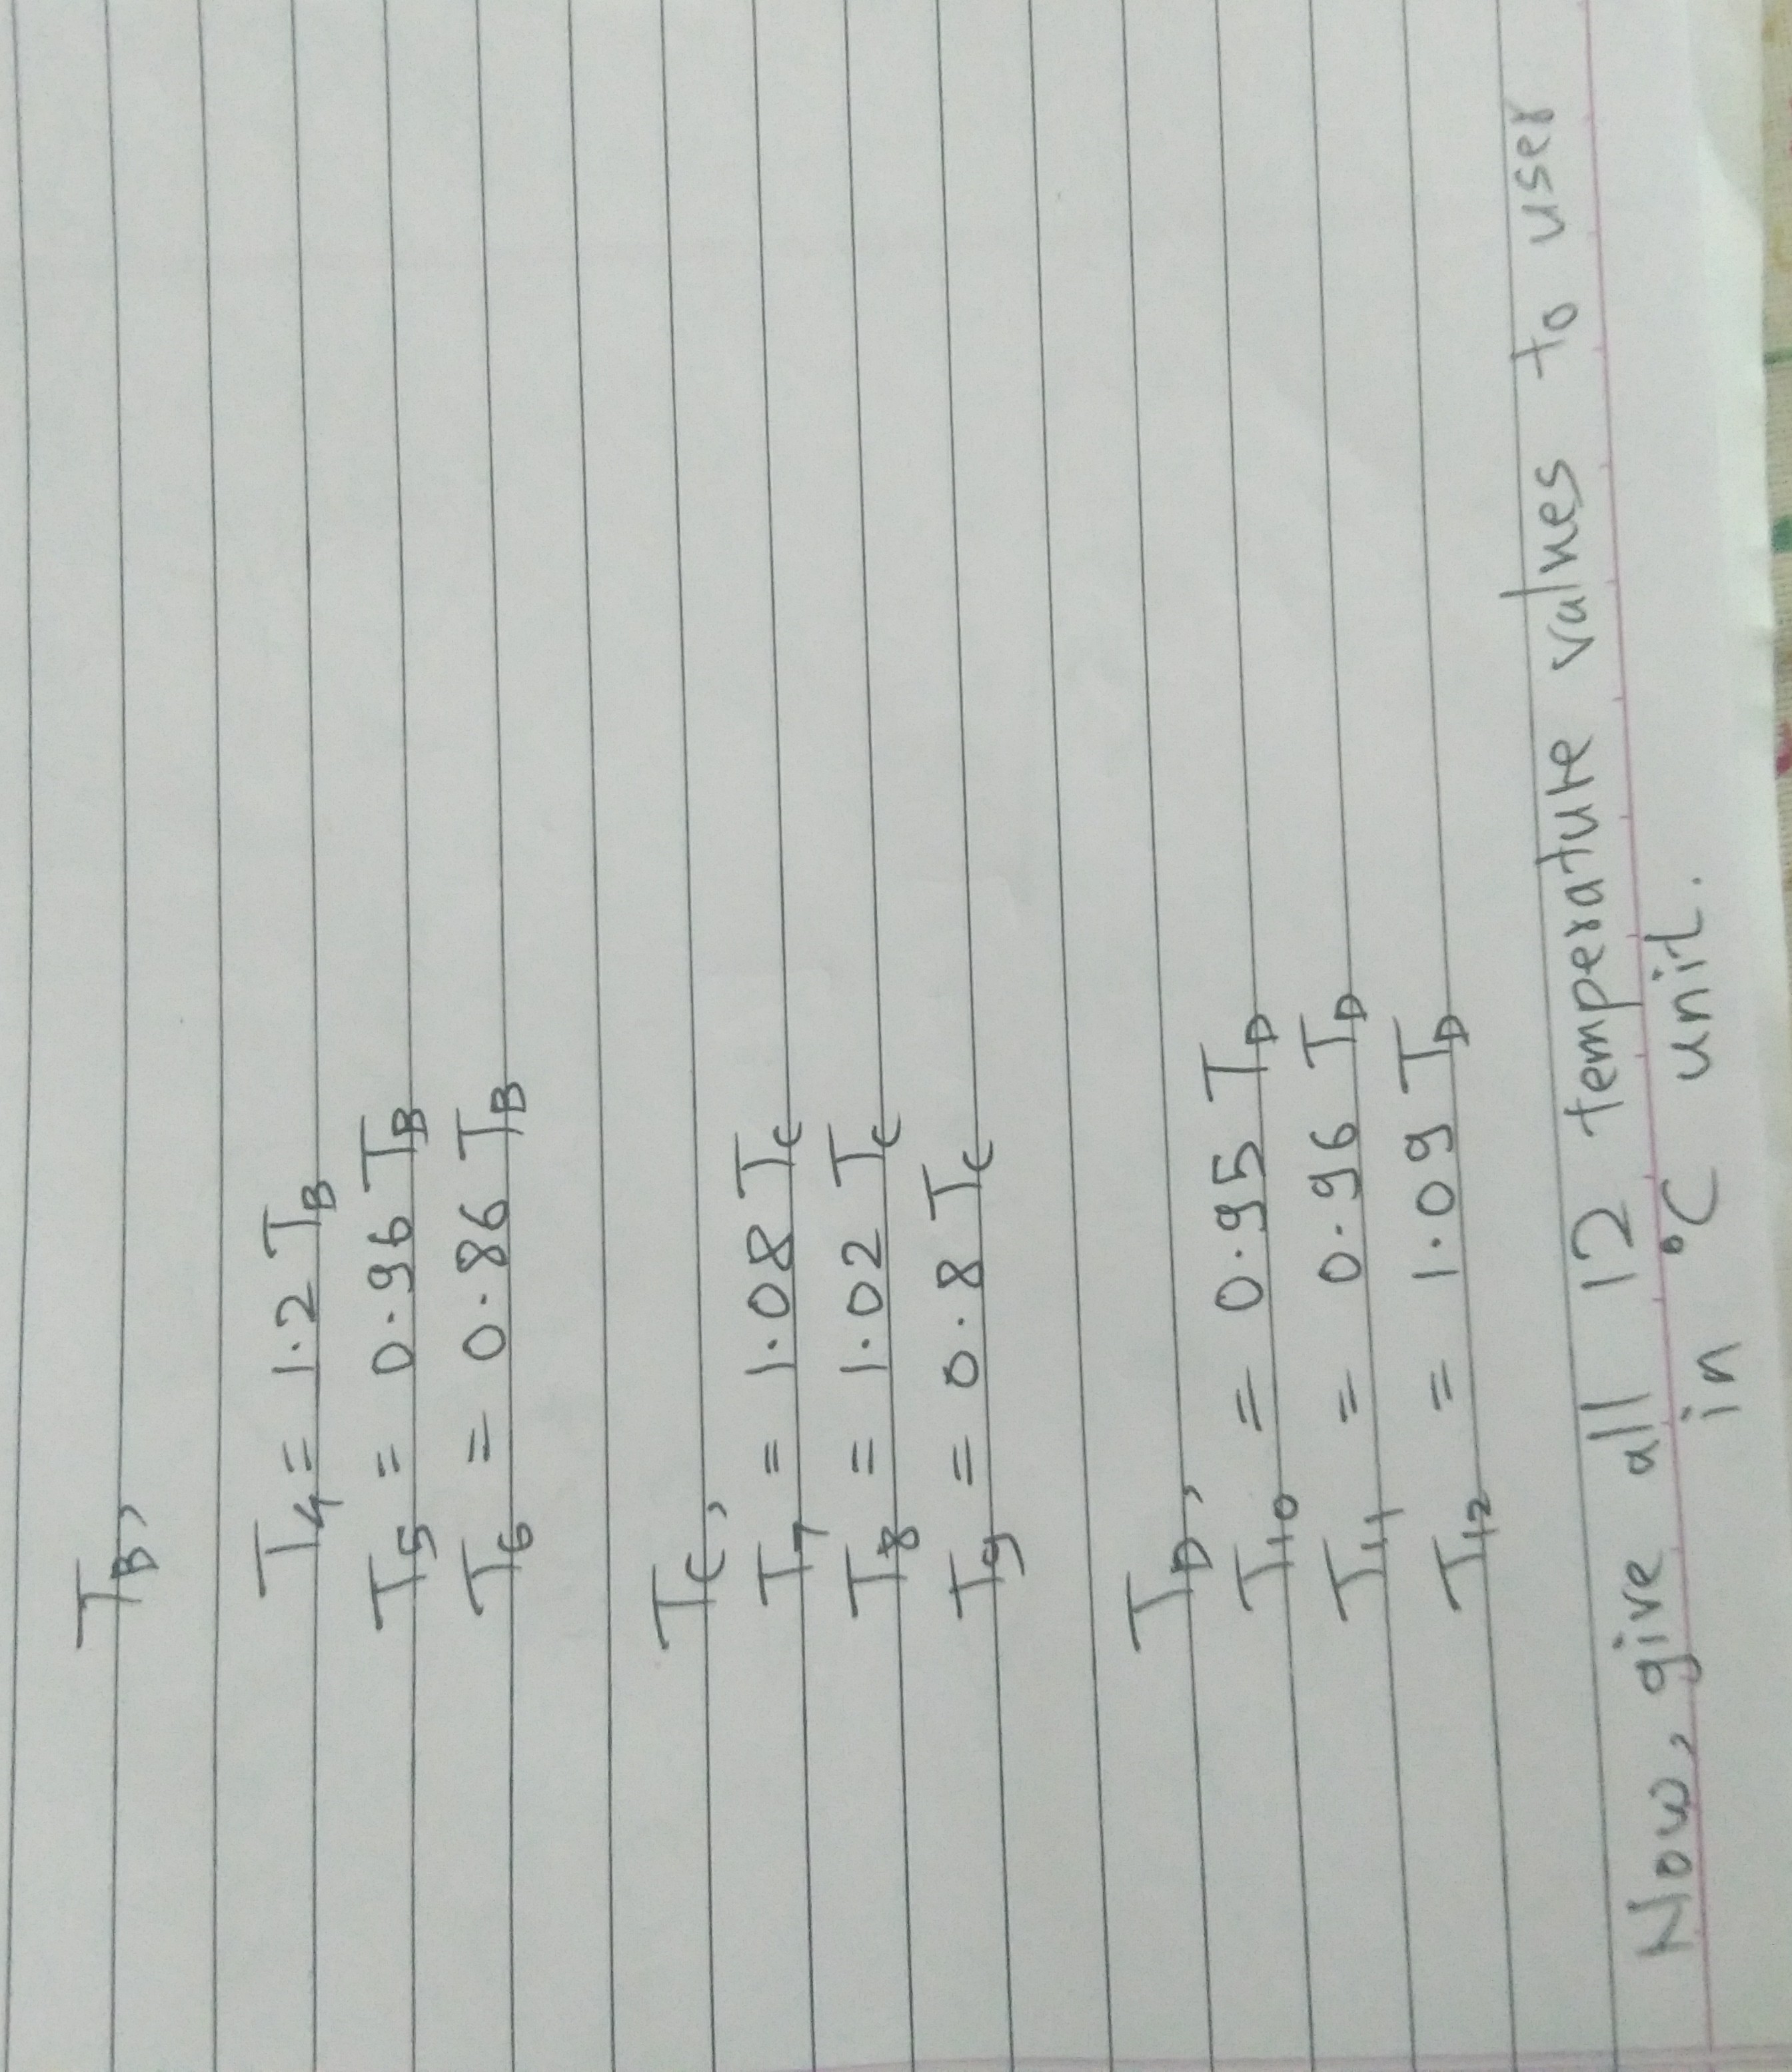 T_B,
T_4 = 1.2 T_B
T_5 = 0.96 T_B
T_6 = 0.86 T_B
T_C,
T_7 = 1.08 T_C
T_8 = 1.02 T_C
T_9 = 0.8 T_C
T_D,
T_10 = 0.95 T_D
T_11 = 0.96 T_D
T_12 = 1.09 T_D
Now, give all 12 temperature values to user
in °C unit.